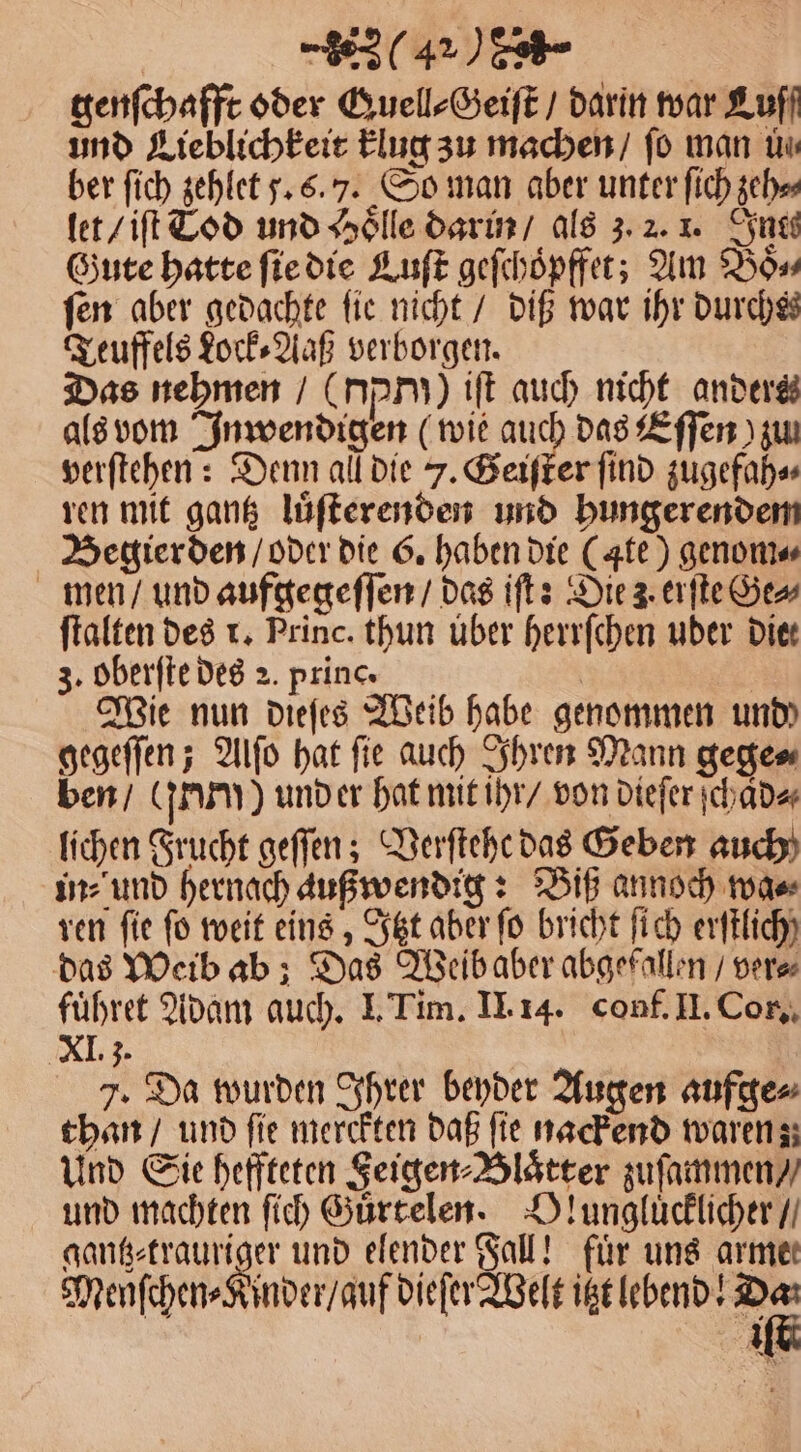 (42)
genſchafft oder Quell-Geiſt / darin war Luſſt
und Lieblichkeit klug zu machen / ſo man uͤ-
ber ſich zehlet 5. 6. 7. So man aber unter ſich zeh-
let / iſt Tod und Hoͤlle darin / als 3. 2. 1. Ins
Gute hatte ſie die Luſt geſchoͤpffet; Am Boͤ-
ſen aber gedachte ſie nicht / diß war ihr durchs
Teuffels Lock-Aaß verborgen.
Das nehmen / (ותקח) iſt auch nicht anders
als vom Inwendigen (wie auch das Eſſen) zu
verſtehen: Denn all die 7. Geiſter ſind zugefah-
ren mit gantz luͤſterenden und hungerendem
Begierden / oder die 6. haben die (4te) genom-
men / und aufgegeſſen / das iſt: Die 3. erſte Ge-
ſtalten des 1. Princ. thun uͤber herrſchen uber die
3. oberſte des 2. princ.
Wie nun dieſes Weib habe genommen und
gegeſſen; Alſo hat ſie auch Ihren Mann gege-
ben / (ותתן) und er hat mit ihr / von dieſer ſchaͤd-
lichen Frucht geſſen; Verſtehe das Geben auch
in- und hernach außwendig: Biß annoch wa-
ren ſie ſo weit eins, Itzt aber ſo bricht ſich erſtlich
das Weib ab; Das Weib aber abgefallen / ver-
fuͤhret Adam auch. I. Tim. II. 14. conf. II. Cor.
XI. 3.
7. Da wurden Ihrer beyder Augen aufge-
than / und ſie merckten daß ſie nackend waren;
Und Sie heffteten Feigen-Blaͤtter zuſammen /
und machten ſich Guͤrtelen. O! ungluͤcklicher /
gantz-trauriger und elender Fall! fuͤr uns arme
Menſchen-Kinder / auf dieſer Welt itzt lebend! Da
iſt